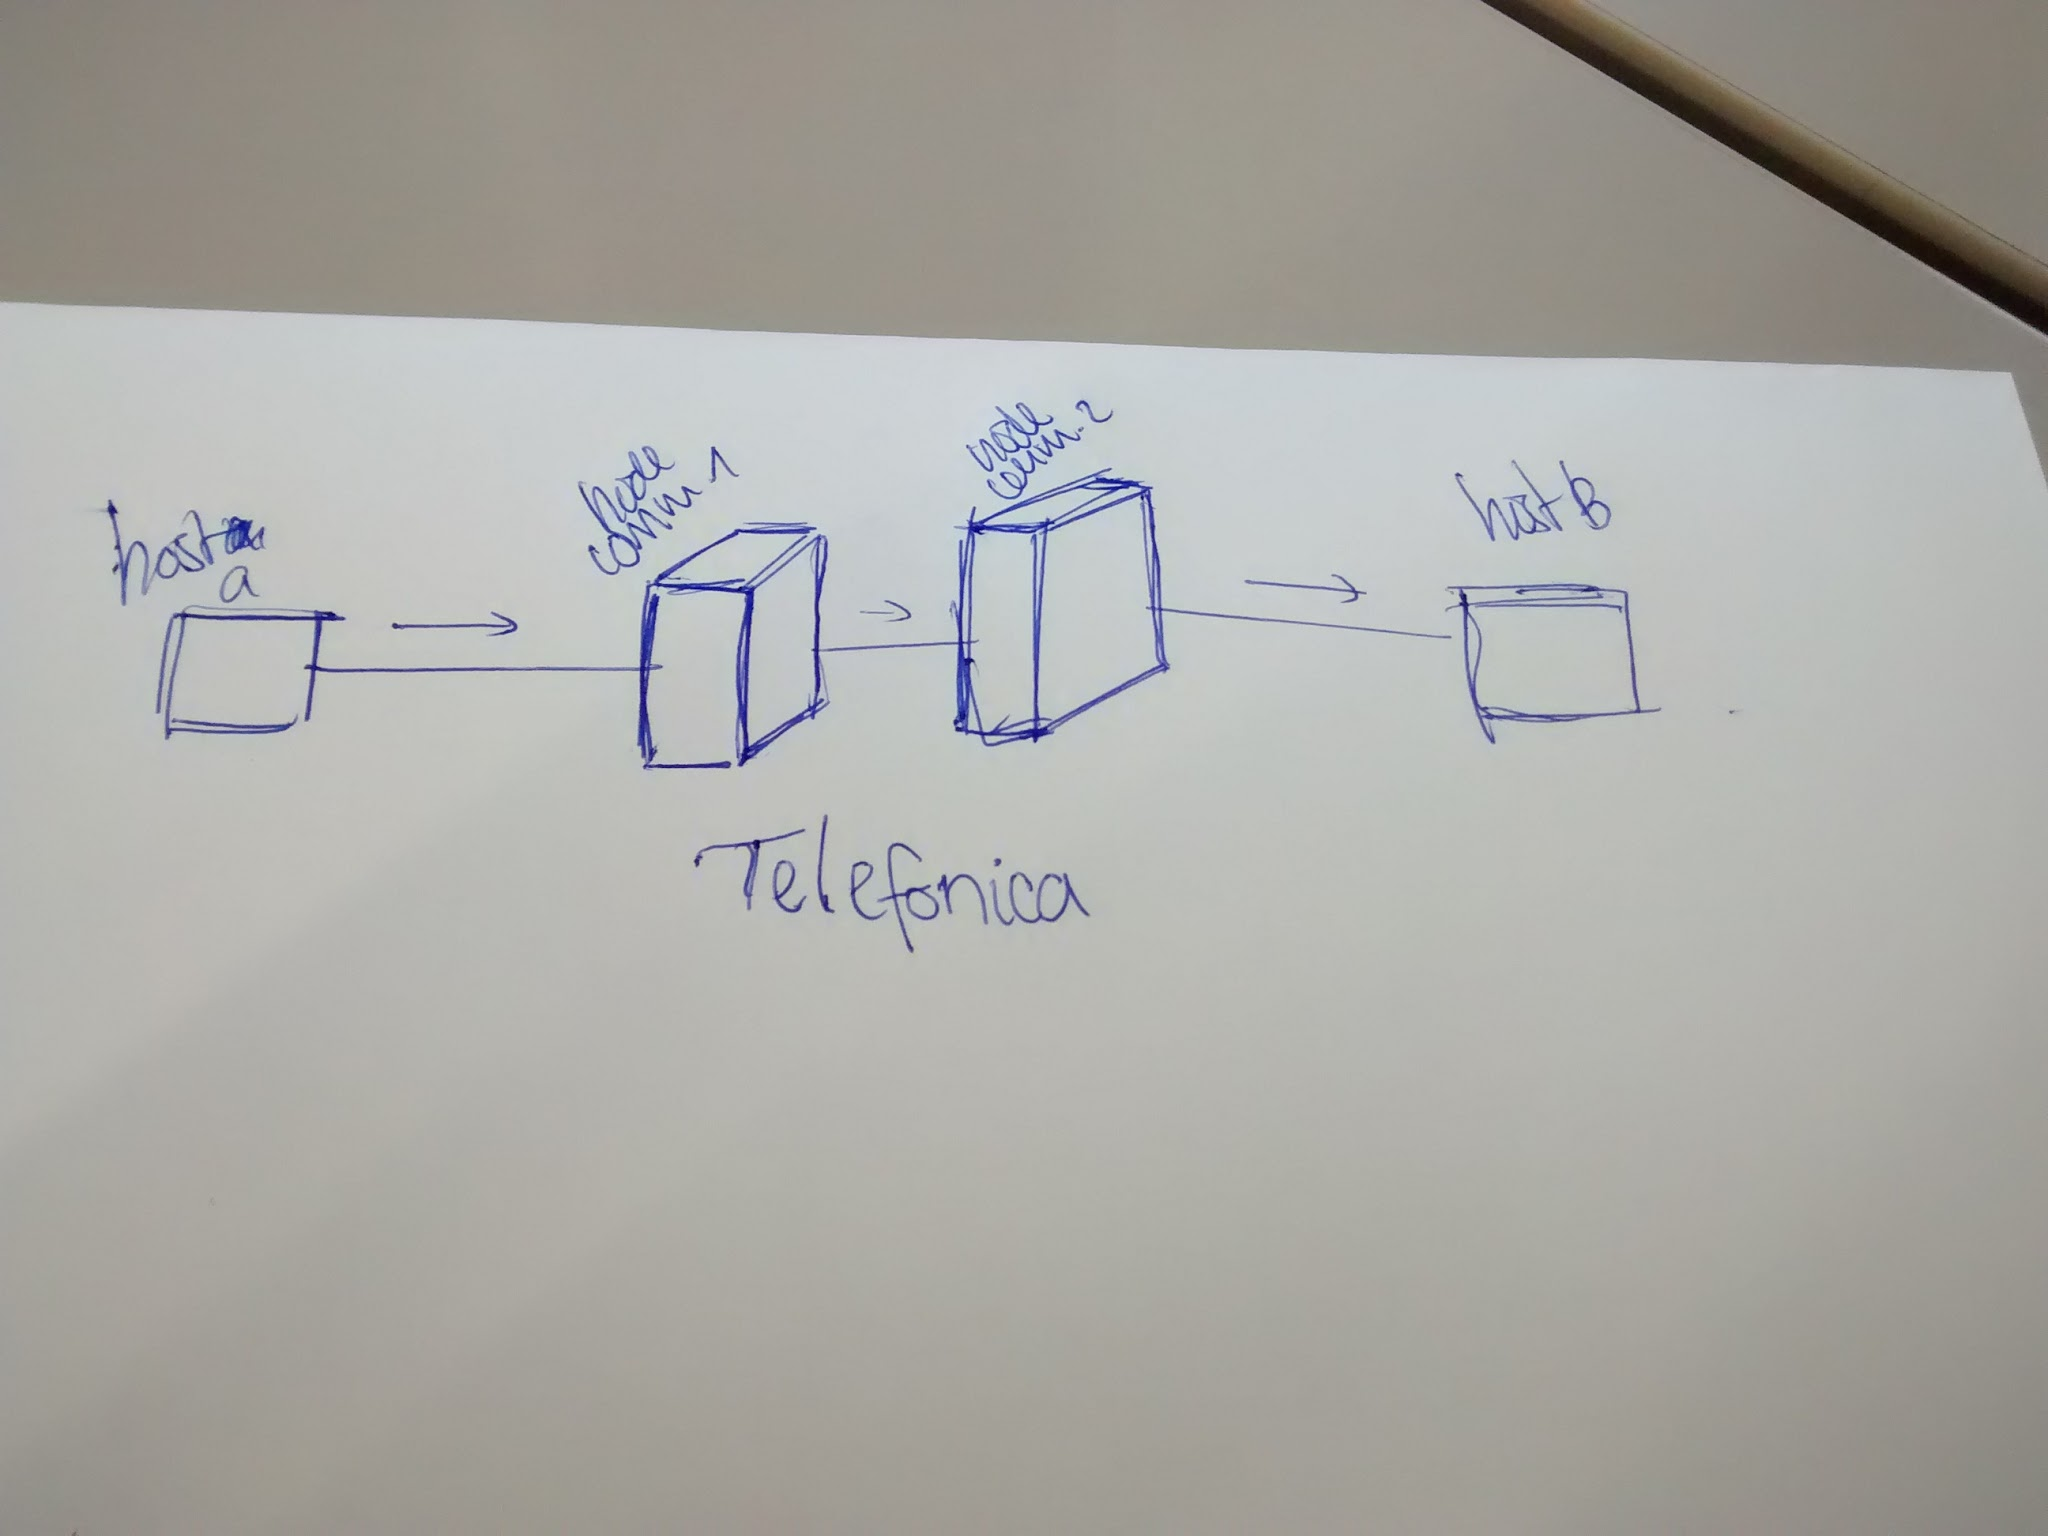 host
a
node
comm. 1
node
comm. 2
host B
Telefonica